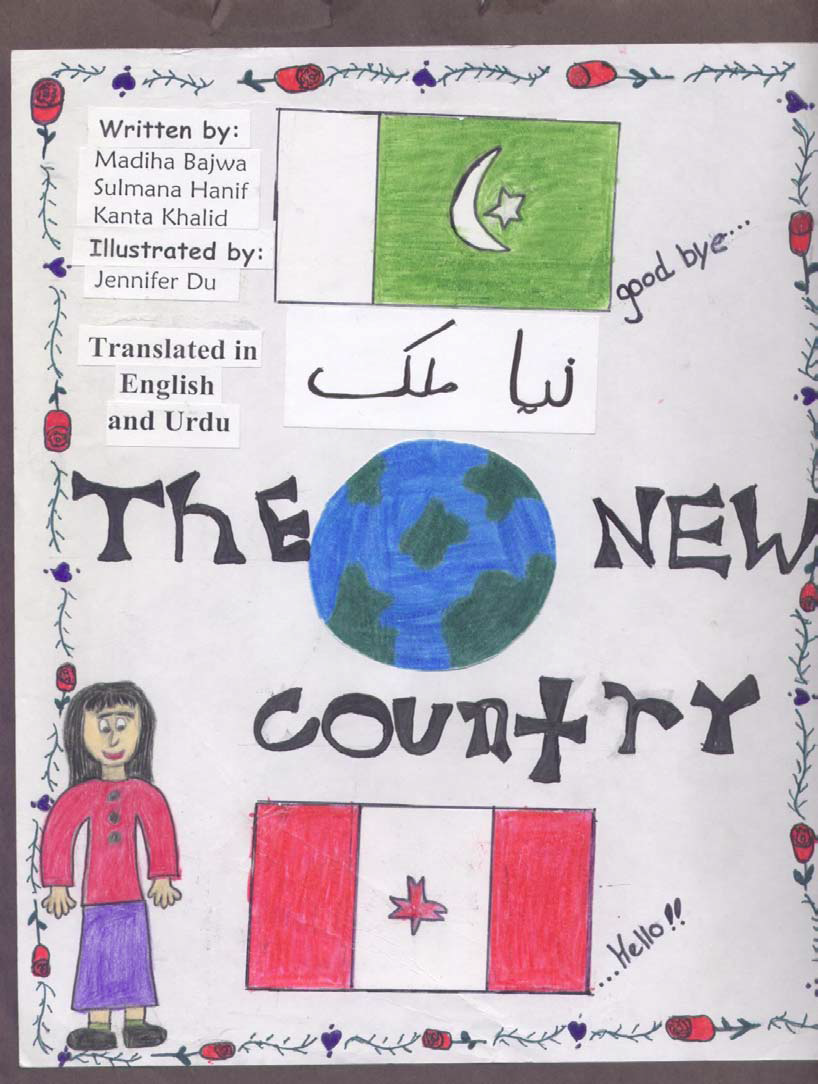 Written by:
Madiha Bajwa
Sulmana Hanif
Kanta Khalid
Illustrated by:
Jennifer Du
good bye...
Translated in
English
and Urdu
نیا ملک
The NEW
COUNTRY
....Hello!!